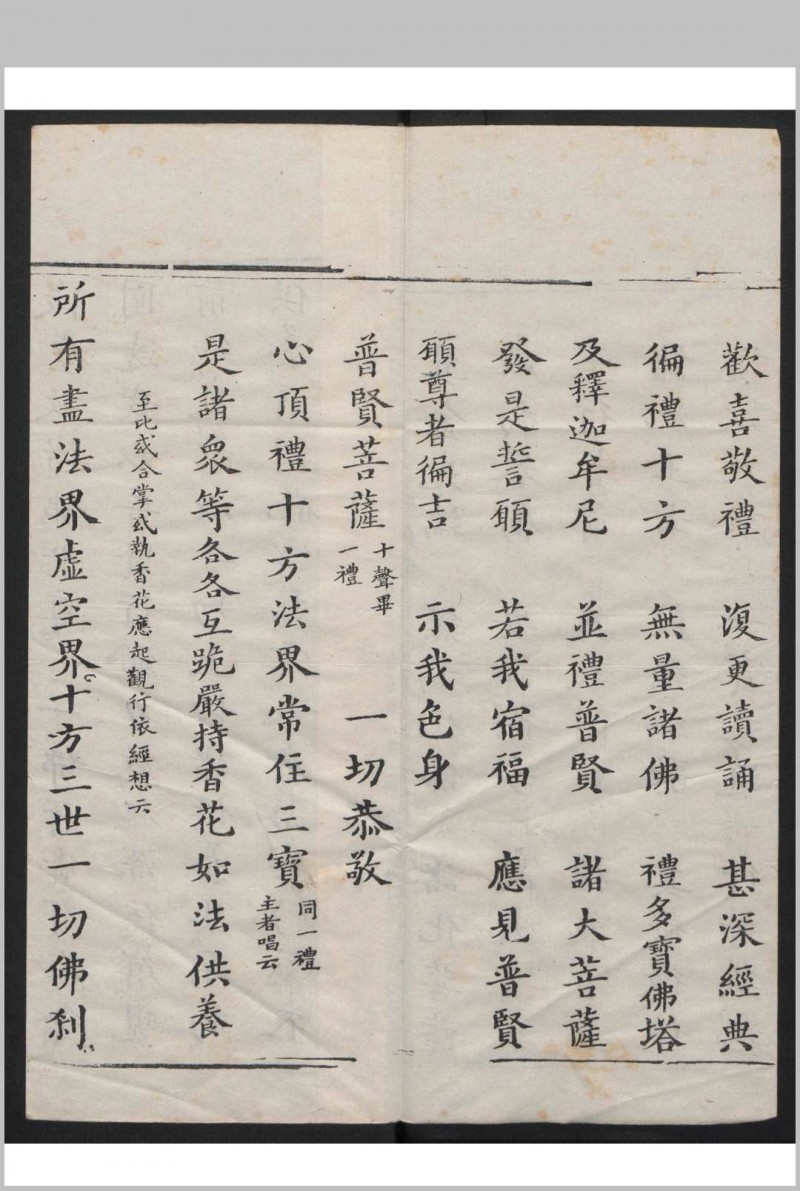 歡喜敬禮　復更讀誦　甚深經典
徧禮十方　無量諸佛　禮多寶佛塔
及釋迦牟尼　並禮普賢　諸大菩薩
發是誓願　若我宿福　應見普賢
願尊者徧吉　示我色身
普賢菩薩 十聲畢
一禮 一切恭敬
心頂禮十方法界常住三寶 同一禮
主者唱云
是諸衆等各各互跪嚴持香花如法供養
至此或合掌或執香花應起觀行依經想云
所有盡法界虛空界十方三世一切佛刹